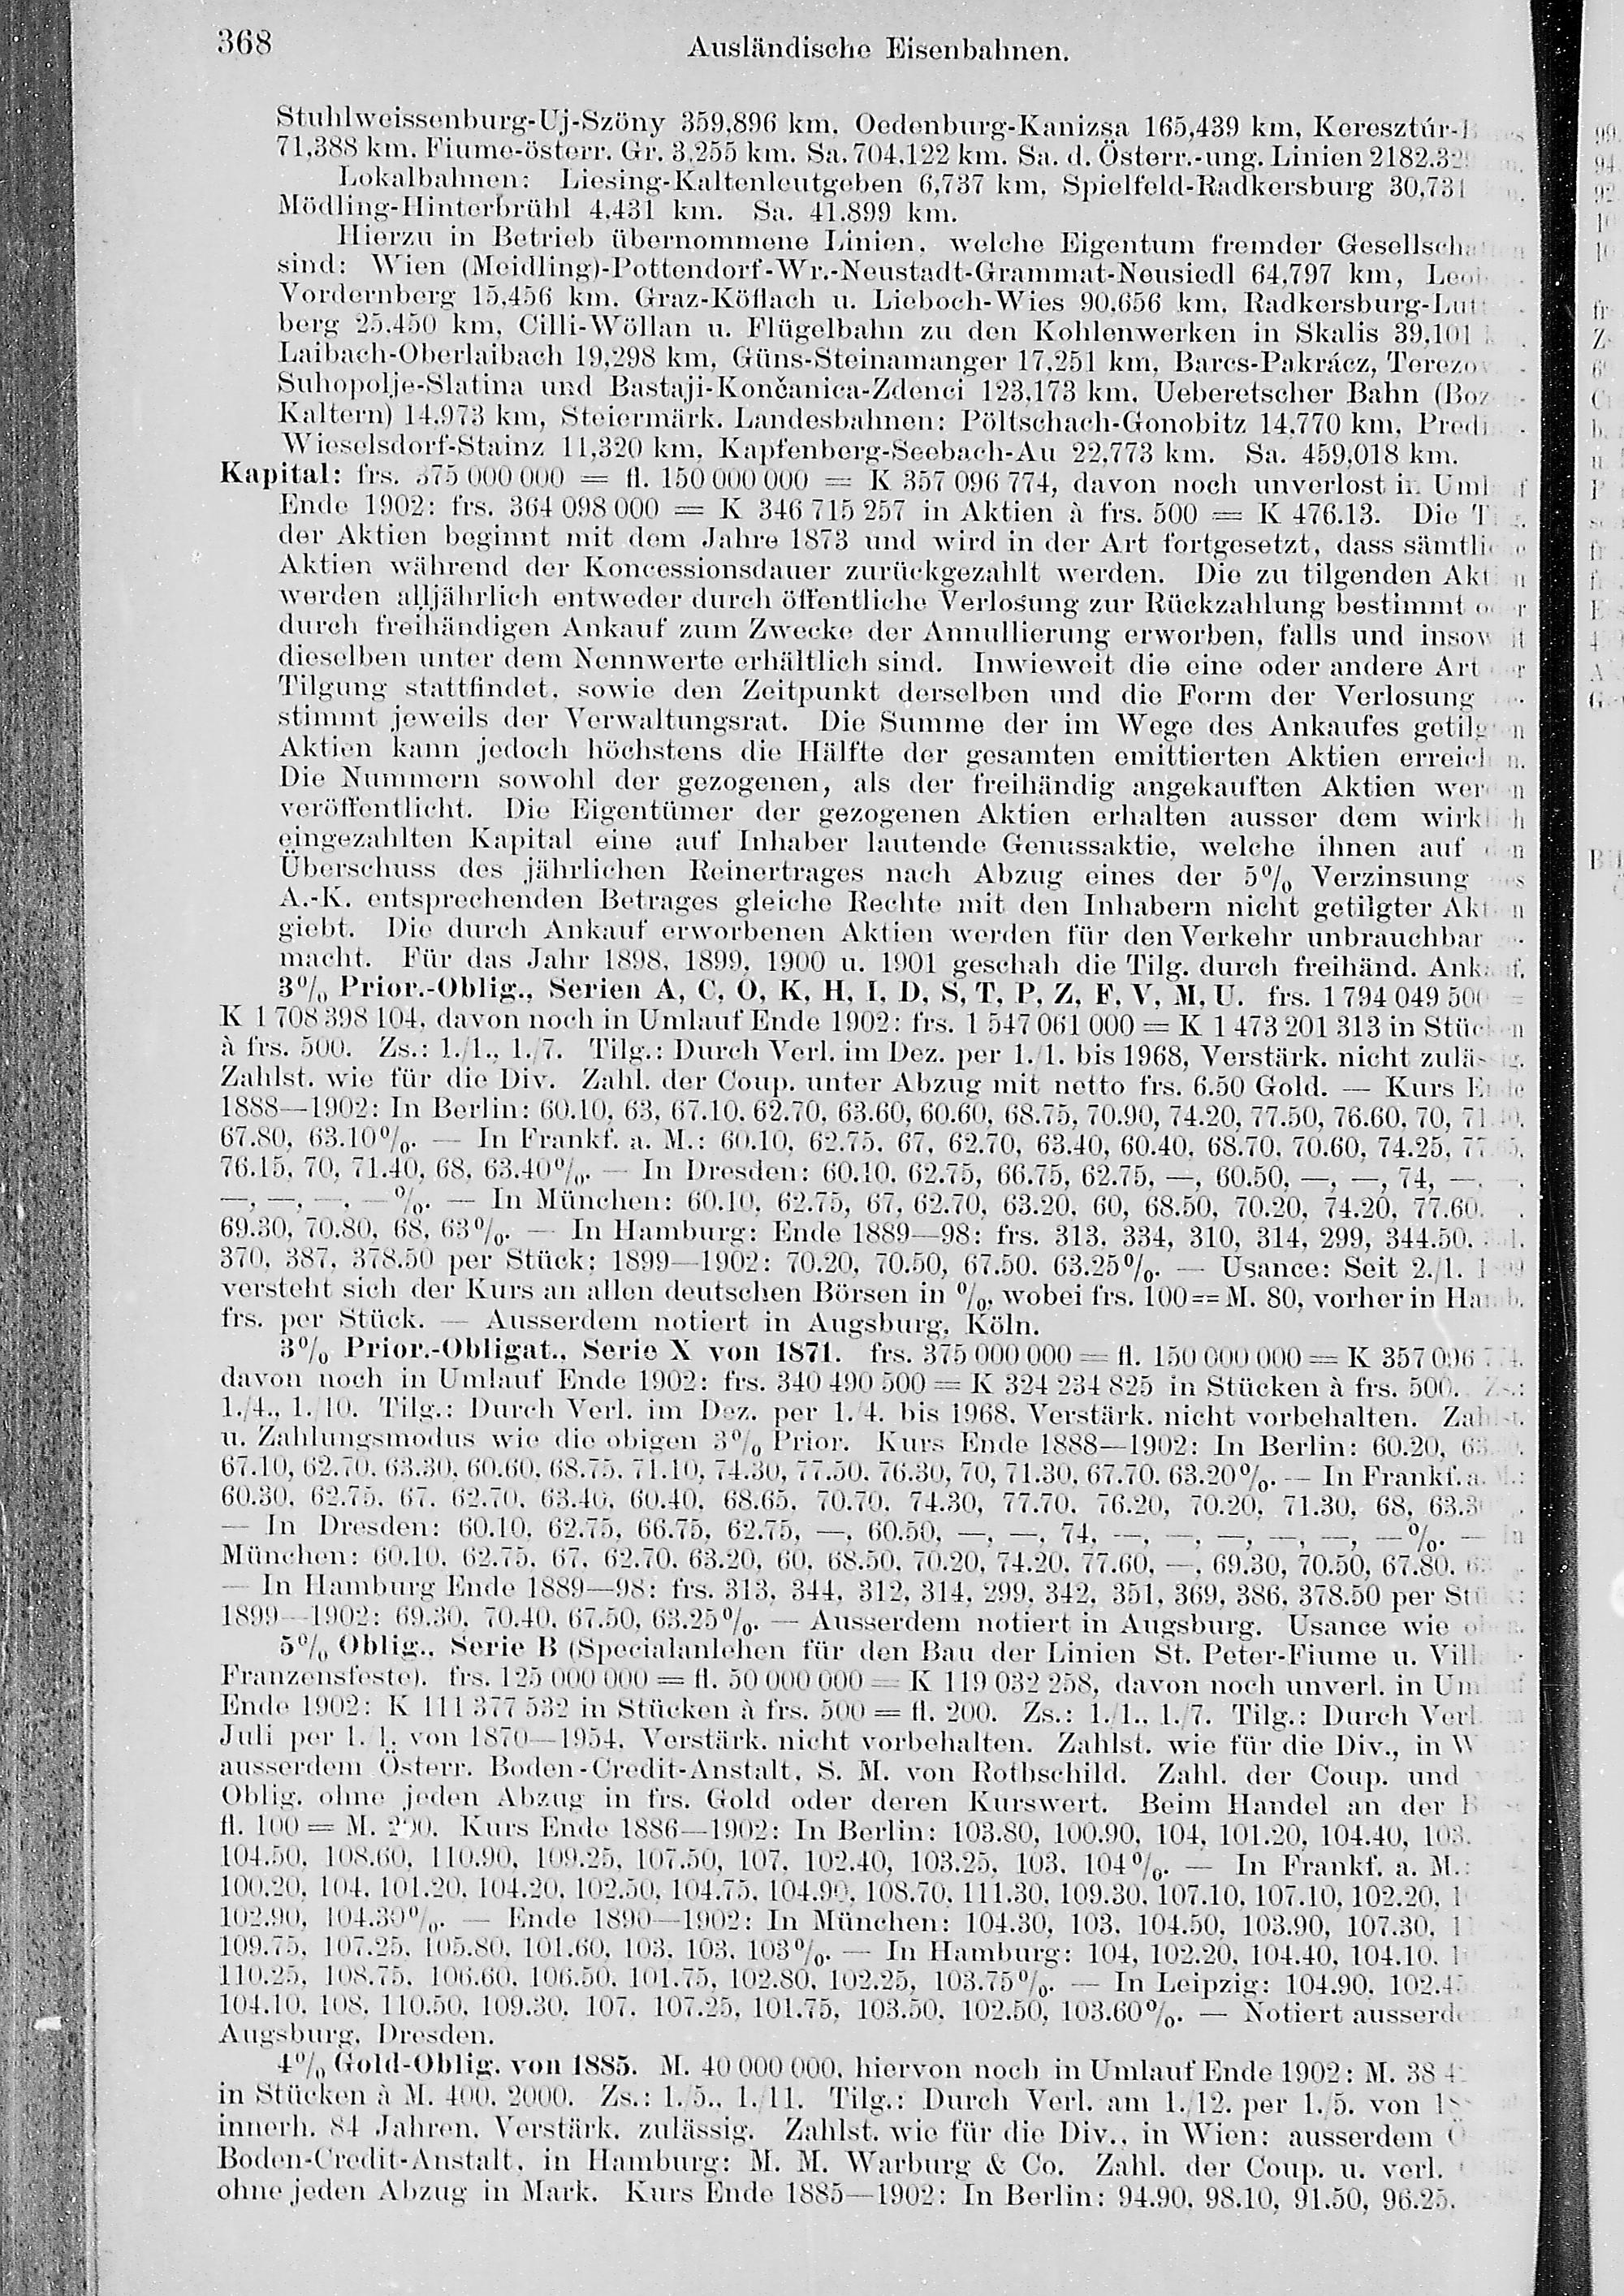 368
Ausländische Eisenbahnen.
Stuhlweissenburg-Uj-Szöny 359,896 km, Oedenburg-Kanizsa 165,439 km, Keresztúr-
71,388 km. Fiume-österr. Gr. 3,255 km. Sa. 704,122 km. Sa. d. Österr.-ung. Linien 2182,32
Lokalbahnen: Liesing-Kaltenleutgeben 6,737 km, Spielfeld-Radkersburg 30,731
Mödling-Hinterbrühl 4,431 km. Sa. 41,899 km.
Hierzu in Betrieb übernommene Linien, welche Eigentum fremder Gesellschaften
sind: Wien (Meidling)-Pottendorf-Wr.-Neustadt-Grammat-Neusiedl 64,797 km,
Vordernberg 15,456 km. Graz-Köflach u. Lieboch-Wies 90,656 km, Radkersburg-Lutt
berg 25,450 km, Cilli-Wöllan u. Flügelbahn zu den Kohlenwerken in Skalis 39,101
Laibach-Oberlaibach 19,298 km, Güns-Steinamanger 17,251 km, Barcs-Pakrácz, Terezov
Suhopolje-Slatina und Bastaji-Končanica-Zdenci 123,173 km, Ueberetscher Bahn (Boz
Kaltern) 14,973 km, Steiermärk. Landesbahnen: Pöltschach-Gonobitz 14,770 km, Predi
Wieselsdorf-Stainz 11,320 km, Kapfenberg-Seebach-Au 22,773 km. Sa. 459,018 km.
Kapital: frs. 375 000 000 = fl. 150 000 000 = K 357 096 774, davon noch unverlost in Umlauf
Ende 1902: frs. 364 098 000 = K 346 715 257 in Aktien à frs. 500 = K 476.13. Die Tilg.
der Aktien beginnt mit dem Jahre 1873 und wird in der Art fortgesetzt, dass sämtliche
Aktien während der Koncessionsdauer zurückgezahlt werden. Die zu tilgenden Aktien
werden alljährlich entweder durch öffentliche Verlosung zur Rückzahlung bestimmt oder
durch freihändigen Ankauf zum Zwecke der Annullierung erworben, falls und insoweit
dieselben unter dem Nennwerte erhältlich sind. Inwieweit die eine oder andere Art der
Tilgung stattfindet, sowie den Zeitpunkt derselben und die Form der Verlosung
stimmt jeweils der Verwaltungsrat. Die Summe der im Wege des Ankaufes getilgten
Aktien kann jedoch höchstens die Hälfte der gesamten emittierten Aktien erreichen.
Die Nummern sowohl der gezogenen, als der freihändig angekauften Aktien werden
veröffentlicht. Die Eigentümer der gezogenen Aktien erhalten ausser dem wirklich
eingezahlten Kapital eine auf Inhaber lautende Genussaktie, welche ihnen auf den
Überschuss des jährlichen Reinertrages nach Abzug eines der 5% Verzinsung des
A.-K. entsprechenden Betrages gleiche Rechte mit den Inhabern nicht getilgter Aktien
giebt. Die durch Ankauf erworbenen Aktien werden für den Verkehr unbrauchbar ge-
macht. Für das Jahr 1898, 1899, 1900 u. 1901 geschah die Tilg. durch freihänd. Ankauf.
3% Prior.-Oblig., Serien A, C, O, K, H, I, D, S, T, P, Z, F, V, M, U. frs. 1 794 049 500 =
K 1 708 398 104, davon noch in Umlauf Ende 1902: frs. 1 547 061 000 = K 1 473 201 313 in Stücken
à frs. 500. Zs.: 1./1., 1./7. Tilg.: Durch Verl. im Dez. per 1./1. bis 1968, Verstärk. nicht zulässig.
Zahlst. wie für die Div. Zahl. der Coup. unter Abzug mit netto frs. 6.50 Gold. — Kurs Ende
1888—1902: In Berlin: 60.10, 63, 67.10, 62.70, 63.60, 60.60, 68.75, 70.90, 74.20, 77.50, 76.60, 70,
67.80, 63.10%. — In Frankf. a. M.: 60.10, 62.75, 67, 62.70, 63.40, 60.40, 68.70, 70.60, 74.25,
76.15, 70, 71.40, 68, 63.40%. — In Dresden: 60.10, 62.75, 66.75, 62.75, —, 60.50, —, —, 74, —,
—, —, —, —%. — In München: 60.10, 62.75, 67, 62.70, 63.20, 60, 68.50, 70.20, 74.20, 77.60,
69.30, 70.80, 68, 63%. — In Hamburg: Ende 1889—98: frs. 313, 334, 310, 314, 299, 344.50,
370, 387, 378.50 per Stück; 1899—1902: 70.20, 70.50, 67.50, 63.25%. — Usance: Seit 2./1. 1899
versteht sich der Kurs an allen deutschen Börsen in %, wobei frs. 100 = M. 80, vorher in Hamb.
frs. per Stück. — Ausserdem notiert in Augsburg, Köln.
3% Prior.-Obligat., Serie X von 1871. frs. 375 000 000 = fl. 150 000 000 = K 357 096 774,
davon noch in Umlauf Ende 1902: frs. 340 490 500 = K 324 234 825 in Stücken à frs. 500. Zs.:
1./4., 1./10. Tilg.: Durch Verl. im Dez. per 1./4. bis 1968. Verstärk. nicht vorbehalten. Zahlst.
u. Zahlungsmodus wie die obigen 3% Prior. Kurs Ende 1888—1902: In Berlin: 60.20,
67.10, 62.70, 63.30, 60.60, 68.75, 71.10, 74.30, 77.50, 76.30, 70, 71.30, 67.70, 63.20%. — In Frankf. a. M.:
60.30, 62.75, 67, 62.70, 63.40, 60.40, 68.65, 70.70, 74.30, 77.70, 76.20, 70.20, 71.30, 68,
— In Dresden: 60.10, 62.75, 66.75, 62.75, —, 60.50, —, —, 74, —, —, —, —, —, —%. — In
München: 60.10, 62.75, 67, 62.70, 63.20, 60, 68.50, 70.20, 74.20, 77.60, —, 69.30, 70.50, 67.80,
— In Hamburg Ende 1889—98: frs. 313, 344, 312, 314, 299, 342, 351, 369, 386, 378.50 per Stück:
1899—1902: 69.30, 70.40, 67.50, 63.25%. — Ausserdem notiert in Augsburg. Usance wie oben.
5% Oblig., Serie B (Specialanlehen für den Bau der Linien St. Peter-Fiume u. Villach-
Franzensfeste). frs. 125 000 000 = fl. 50 000 000 = K 119 032 258, davon noch unverl. in Umlauf
Ende 1902: K 111 377 532 in Stücken à frs. 500 = fl. 200. Zs.: 1./1., 1./7. Tilg.: Durch Verl. im
Juli per 1./1. von 1870—1954. Verstärk. nicht vorbehalten. Zahlst. wie für die Div., in
ausserdem Österr. Boden-Credit-Anstalt, S. M. von Rothschild. Zahl. der Coup. und
Oblig. ohne jeden Abzug in frs. Gold oder deren Kurswert. Beim Handel an der
fl. 100 = M. Kurs Ende 1886—1902: In Berlin: 103.80, 100.90, 104, 101.20, 104.40,
104.50, 108.60, 110.90, 109.25, 107.50, 107, 102.40, 103.25, 103, 104%. — In Frankf. a. M.:
100.20, 104, 101.20, 104.20, 102.50, 104.75, 104.90, 108.70, 111.30, 109.30, 107.10, 107.10, 102.20,
102.90, 104.30%. — Ende 1890—1902: In München: 104.30, 103, 104.50, 103.90, 107.30,
109.75, 107.25, 105.80, 101.60, 103, 103, 103%. — In Hamburg: 104, 102.20, 104.40, 104.10,
110.25, 108.75, 106.60, 106.50, 101.75, 102.80, 102.25, 103.75%. — In Leipzig: 104.90,
104.10, 108, 110.50, 109.30, 107, 107.25, 101.75, 103.50, 102.50, 103.60%. — Notiert
Augsburg, Dresden.
4% Gold-Oblig. von 1885. M. 40 000 000, hiervon noch in Umlauf Ende 1902: M. 38
in Stücken à M. 400, 2000. Zs.: 1./5., 1./11. Tilg.: Durch Verl. am 1./12. per 1./5. von
innerh. 84 Jahren. Verstärk. zulässig. Zahlst. wie für die Div., in Wien: ausserdem
Boden-Credit-Anstalt, in Hamburg: M. M. Warburg & Co. Zahl. der Coup. u. verl.
ohne jeden Abzug in Mark. Kurs Ende 1885—1902: In Berlin: 94.90, 98.10, 91.50, 96.25,